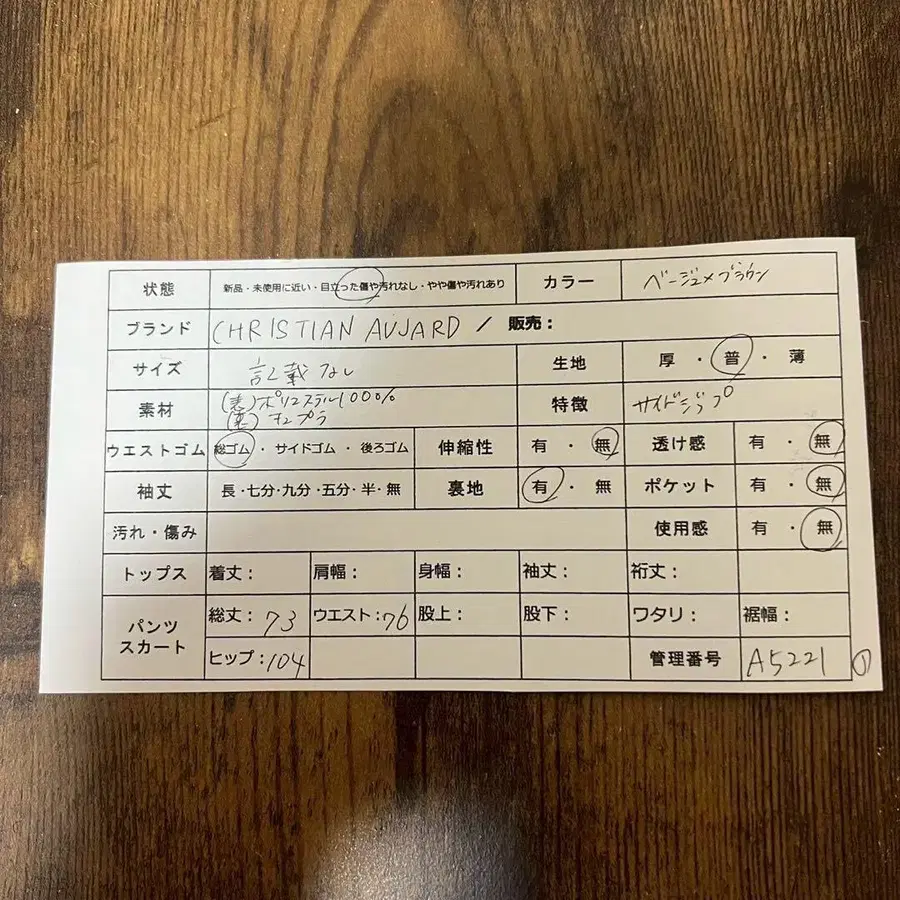 状態 新品・未使用に近い・目立った傷や汚れなし・やや傷や汚れあり カラー ベージュ×ブラウン
ブランド CHRISTIAN AUJARD / 販売：
サイズ 記載なし 生地 厚・普・薄
素材 (表)ポリエステル100% 特徴 サイドジップ
(裏)キュプラ
ウエストゴム 総ゴム・サイドゴム・後ろゴム 伸縮性 有・無 透け感 有・無
袖丈 長・七分・九分・五分・半・無 裏地 有・無 ポケット 有・無
汚れ・傷み 使用感 有・無
トップス 着丈： 肩幅： 身幅： 袖丈： 裄丈：
パンツ スカート 総丈：73 ウエスト：76 股上： 股下： ワタリ： 裾幅：
ヒップ：104 管理番号 A5221 ①